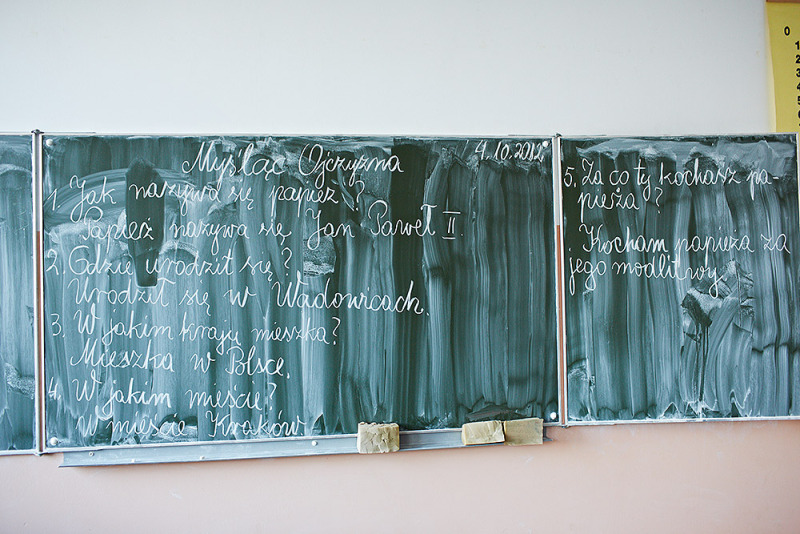 Myśląc Ojczyzna
14.10.2012
1. Jak nazywa się papież?
Papież nazywa się Jan Paweł II.
2. Gdzie urodził się?
Urodził się w Wadowicach.
3. W jakim kraju mieszka?
Mieszka w Polsce.
4. W jakim mieście?
W mieście Kraków
5. Za co ty kochasz pa-
pieża?
Kocham papieża za
jego modlitwy.
0
1
2
3
4
5